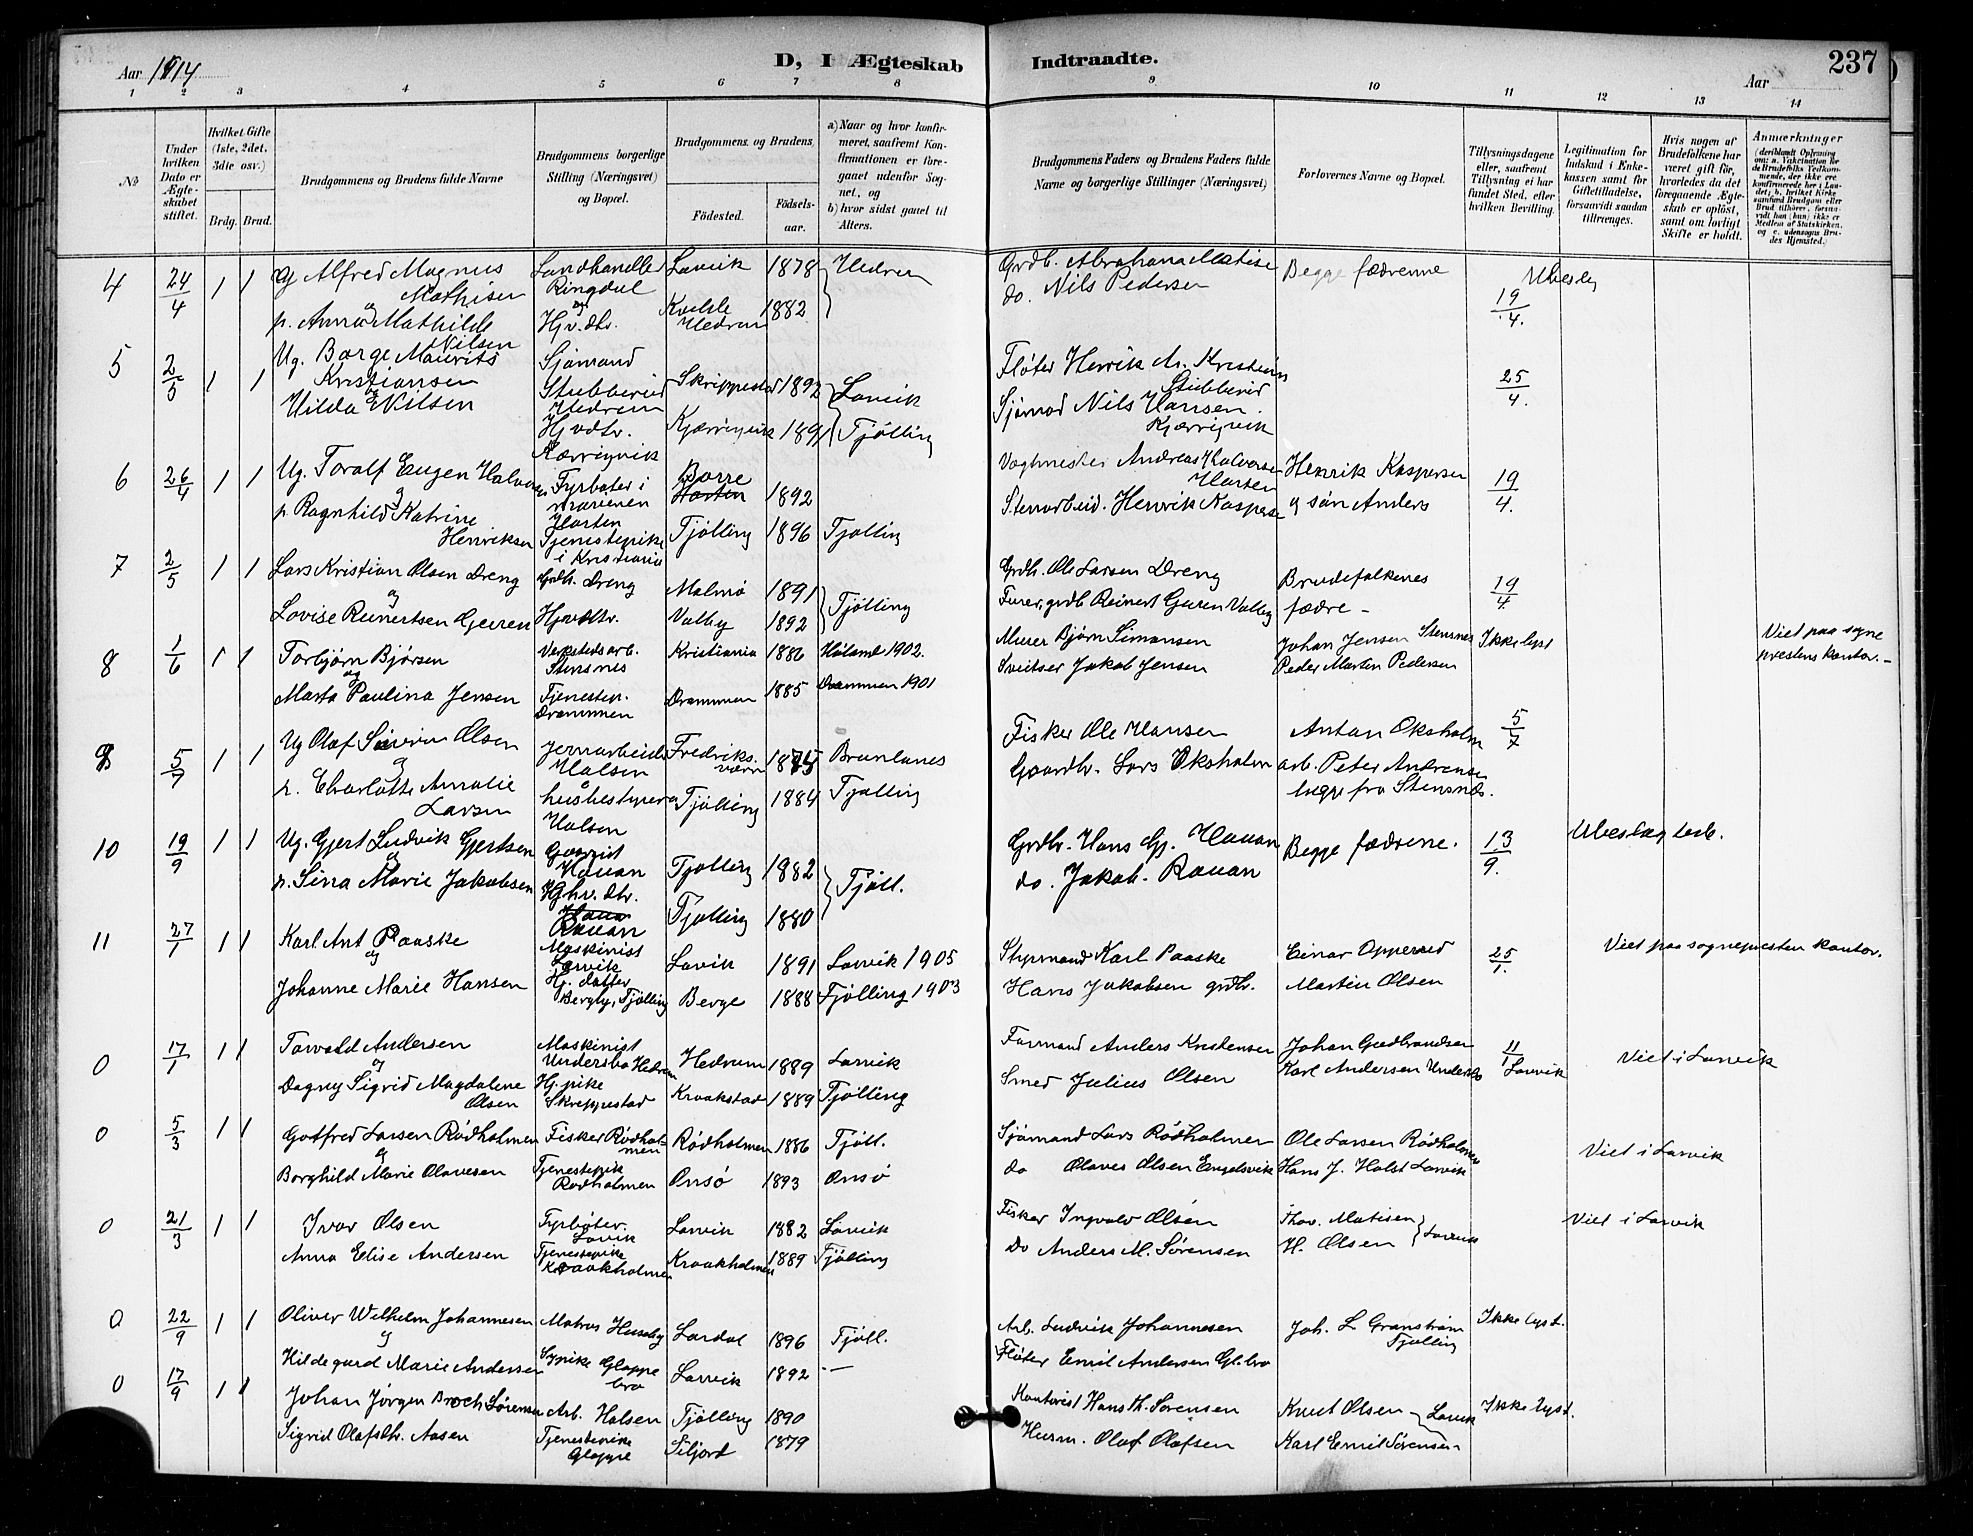 Aar 1914
D, I Ægteskab Indtraadte.
Aar
237
1 2 3 4 5 6 7 8 9 10 11 12 13 14
No
Under hvilken Dato er Ægteskabet stiftet.
Hvilket Gifte (1ste, 2det, 3die osv.)
Brdg. Brud.
Brudgommens og Brudens fulde Navne
Brudgommens borgerlige Stilling (Næringsvei) og Bopæl.
Brudgommens og Brudens
Födested.
Födselsaar.
a) Naar og hvor konfirmeret, saafremt Konfirmationen er foregaaet udenfor Sognet, og
b) hvor sidst gaaet til Alters.
Brudgommens Faders og Brudens Faders fulde Navne og borgerlige Stillinger (Næringsvei)
Forlovernes Navne og Bopæl.
Tillysningsdagene eller, saafremt Tillysning ei har fundet Sted, efter hvilken Bevilling.
Legitimation for Indskud i Enkekassen samt for Giftetilladelse, forsaavidt saadan tiltrænges.
Hvis nogen af Brudefolkene har været gift för, hvorledes da det foregaaende Ægteskab er oplöst, samt om lovligt Skifte er holdt.
Anmærkninger
4 24/4 1 1 Alfred Magnus Mathisen Landhandler Ringdal Larvik 1878 Hedrum
og
p. Anna Mathilde Nilsen Hjv. dtr. Kvelde Hedrum 1882
Grdb. Abraham Matise
do. Nils Pedersen
Begge fædrene
19/4.
5 2/5 1 1 Ug. Borge Mauritz Kristiansen Sjømand Stubberud Hedrum Skrippestad 1892 Larvik
og
Hilda E Nilsen Hjvdtr. Kjærrigvik 1891 Tjölling
Fløter Henrik M. Kristiansen Stubberud
Sjømand Nils Hansen. Kjærrigvik
25/4.
6 26/4 1 1 Ug. Toralf Eugen Halvorsen Fyrbøter i marinen Horten Borre 1892
og
p. Ragnhild Katrine Henriksen Tjenestepike i Kristiania Tjölling 1896 Tjölling
Vagtmester Andreas Halvorsen Horten
Stenarbeid. Henrik Kaspersen
Henrik Kaspersen
og søn Anders
19/4.
7 2/5 1 1 Lars Kristian Olsen Dreng Grdb. Dreng Malmø 1891 Tjölling
og
Lovise Reinertsen Guren Hjvdtr. Valby 1892
Grdb. Ole Larsen Dreng
Reinert Guren Valby
Brudefolkenes
fædre -
19/4
8 1/6 1 1 Torbjørn Bjørsen Verkstedsarb. Stensnes Kristiania 1886 Høland 1902.
og
Marta Paulina Jensen Tjenestep. Drammen Drammen 1885 Drammen 1901
Murer Bjørn Simonsen
Jakob Jensen
Johan Jensen Stensnes
Peder Martin Pedersen
Ikke lyst
Viet paa sogneprestens kontor. -
9 5/7 1 1 Ug Olaf Severin Olsen Jernarbeider Halsen Fredriksværn 1875 Brunlanes
og
p. Charlotte Amalie Larsen husbestyrer Halsen Tjölling 1884 Tjölling
Fisker Ole Hansen
Gaardbr. Lars Oksholm
Anton Oksholm
arb. Peter Andersen
begge fra Stensnes.
5/7
10 19/9 1 1 Ug. Gjert Ludvik Gjertsen Hauan Tjölling 1882 Tjöll.
og
p. Sina Marie Jakobsen Hjhv. dtr. Rauan Tjölling 1880
Grdbr. Hans Gj. Hauan
do. Jakob. Rauan
Begge fædrene.
13/9.
11 27/1 1 1 Karl Ant Paaske Maskinist Larvik Larvik 1891 Larvik 1905
og
Johanne Marie Hansen Hj. datter Bergby, Tjölling Berge 1888 Tjölling 1903
Styrmand Karl Paaske
Hans Jakobsen grdbr.
Einar Opperud
Martin Olsen
25/1.
Viet paa sogneprestens kontor.
0 17/1 1 1 Torvald Andersen Maskinist Undersbo Hedrum Hedrum 1889 Larvik
og
Dagny Sigrid Magdalene Olsen Hj. pike Skreppestad Kraakstad 1889 Tjölling
Formand Anders Kristensen
Smed Julius Olsen
Johan Gudbrandsen
Karl Andersen Undersbo
11/1 Larvik
Viet i Larvik
0 5/3 1 1 Gotfred Larsen Rödholmen Fisker Rödholmen Rödholmen 1886 Tjöll.
og
Borghild Marie Olavesen Tjenestepik Rødholmen Onsö 1893 Onsö
Sjömand Lars Rödholmen
do Olaves Olsen Engelsvik
Ole Larsen Rödholmen
Hans J. Holst Larvik
Viet i Larvik
0 21/3 1 1 Ivar Olsen Fyrböter. Larvik Larvik 1882 Larvik
Anna Elise Andersen Tjenestepike Kraakholmen Kraakholmen 1889 Tjölling
Fisker Ingvald Olsen
Do Anders M. Sørensen
Thov. Matisen
H. Olsen
Larvik
Viet i Larvik
0 22/9 1 1 Oliver Wilhelm Johannesen Matros Huseby Lardal 1896 Tjöll.
og
Hildegard Marie Andersen Sypike Gloppebro Larvik 1892 -
Arb. Ludvik Johannesen
Fløter Emil Andersen Gl.bro
Joh. L Granstrøm Tjölling
Ikke lyst.
0 17/9 1 1 Johan Jørgen Broch Sørensen Arb. Halsen Tjölling 1890
Sigrid Olafsdtr. Aasen Tjenestepike Gloppe Siljord 1879
Hans Th. Sørensen
Husm. Olaf Olafsen
Knut Olsen
Karl Emil Sørensen
Larvik
Ikke lyst.